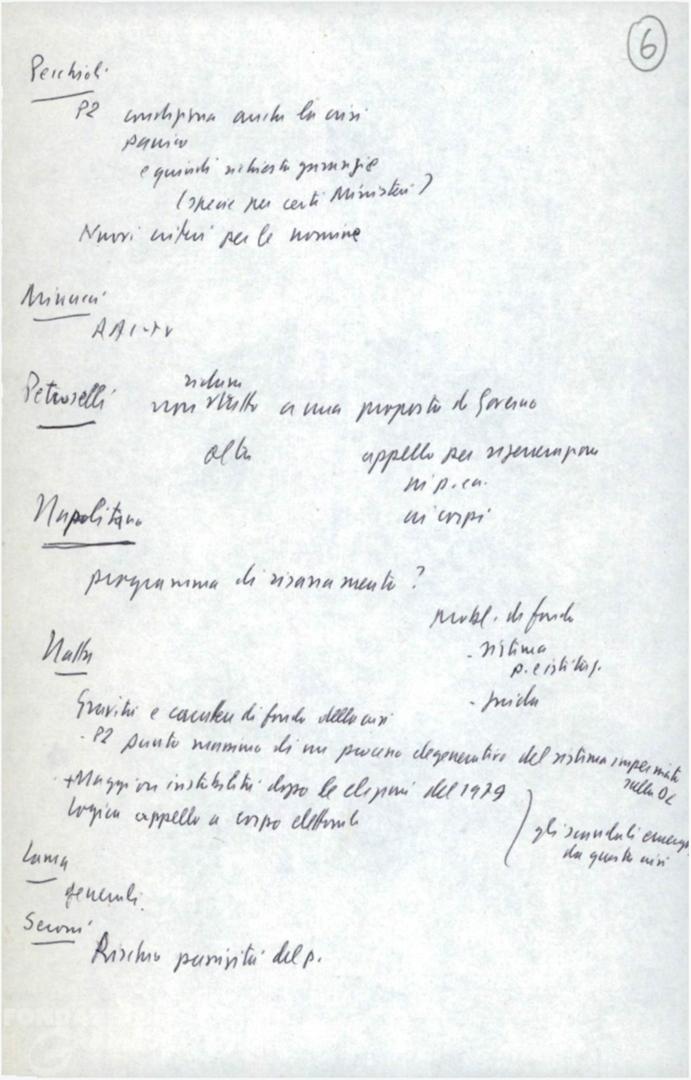 6
Pecchioli
P2 condiziona anche la crisi
panico
e quindi richiesta garanzie
(specie per certi Ministeri)
Nuovi criteri per le nomine
Minucci
RAI-TV
Petroselli
ridursi
non stretto a una proposta di Governo
appello per rigenerazione
ai corpi
Napolitano
programma di risanamento?
probl. di fondo
- sistema
p. e istituz.
- guida
Natta
Gravità e carattere di fondo della crisi
- P2 punto massimo di un processo degenerativo del sistema imperniato
sulla DC
+ Maggiori instabilità dopo le elezioni del 1979
logica appello a corpo elettorale
gli scandali emerg.
da questa crisi
Lama
generali.
Seroni
Rischio passività del p.